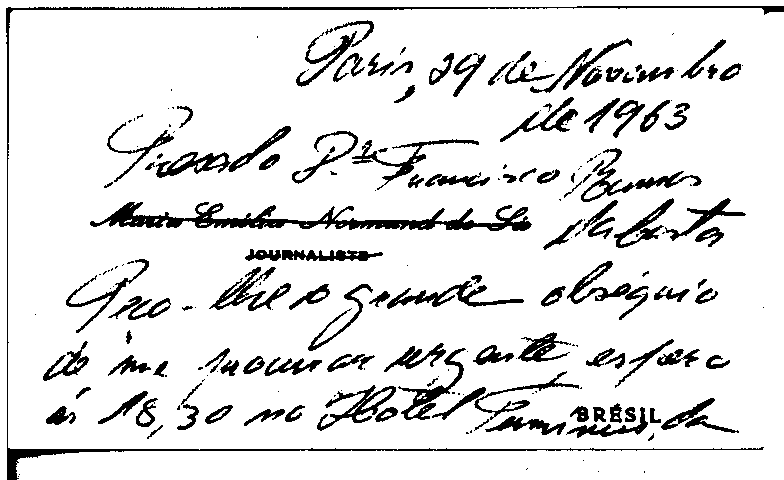 Paris, 29 de Novembro
de 1963
Prezado Dr. Francisco Ramos
Maria Emilia Normand de Sá
da Costa
JOURNALISTE
Peço-lhe o grande obséquio
de me procurar urgente, espero
às 18,30 no Hotel
BRÉSIL
da